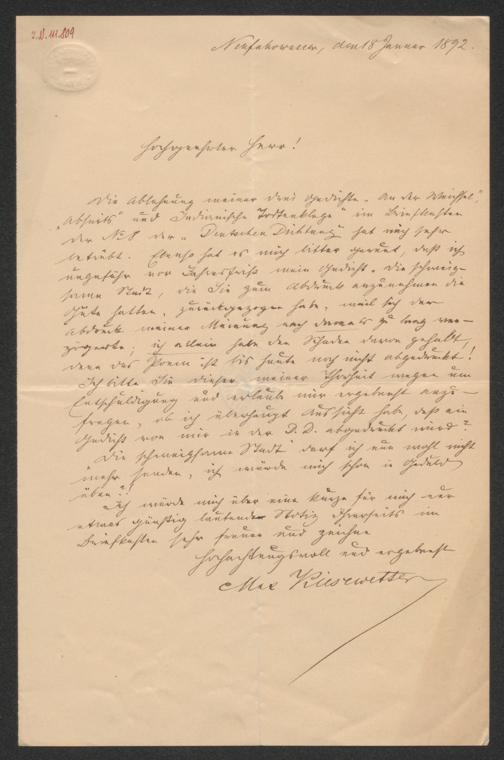 Neufahrwasser, den 18 Januar 1892.
Hochgeehrter Herr!
Die Ablehnung meiner drei Gedichte „An der Weichsel",
„Abseits" und „Indianische Todtenklage" im Briefkasten
der No 8 der „Deutschen Dichtung" hat mich sehr
betrübt. Ebenso hat es mich bitter gereut, daß ich
ungefähr vor Jahresfrist mein Gedicht „Die schweig-
same Stadt", die Sie zum Abdruck anzunehmen die
Güte hatten, zurückgezogen habe, weil sich der
Abdruck meiner Meinung nach damals zu lang ver-
zögerte; ich allein habe den Schaden davon gehabt,
denn das Poem ist bis heute noch nicht abgedruckt!
Ich bitte Sie dieser meiner Thorheit wegen um
Entschuldigung und erlaube mir ergebenst anzu-
fragen, ob ich überhaupt Aussicht habe, daß ein
Gedicht von mir in der D. D. abgedruckt wird?
„Die schweigsame Stadt" darf ich nun wohl nicht
mehr senden, ich würde mich schon in Geduld
üben!!
Ich würde mich über eine kurze für mich nur
etwas günstig lautende Notiz Ihrerseits im
Briefkasten sehr freuen und zeichne
Hochachtungsvoll und ergebenst
Max Kiesewetter